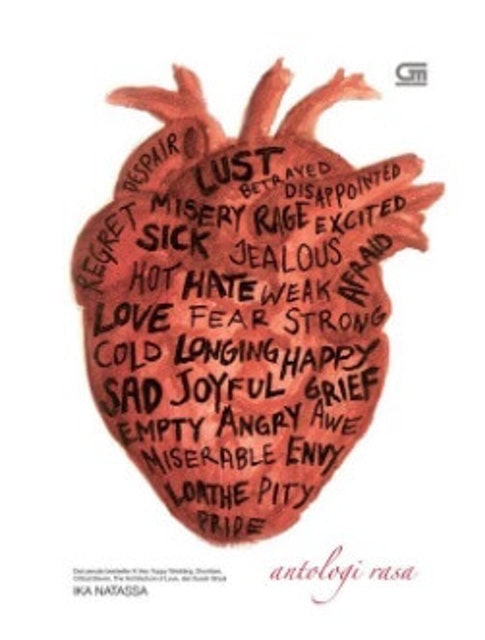 GM
DESPAIR
LUST
BETRAYED
DISAPPOINTED
REGRET
MISERY RAGE EXCITED
SICK JEALOUS AFRAID
HOT HATE WEAK
LOVE FEAR STRONG
COLD LONGING HAPPY
SAD JOYFUL GRIEF
EMPTY ANGRY AWE
MISERABLE ENVY
LOATHE PITY
PRIDE
antologi rasa
Dari penulis bestseller A Very Yuppy Wedding, Divortiare,
Critical Eleven, The Architecture of Love, dan Susah Sinyal
IKA NATASSA